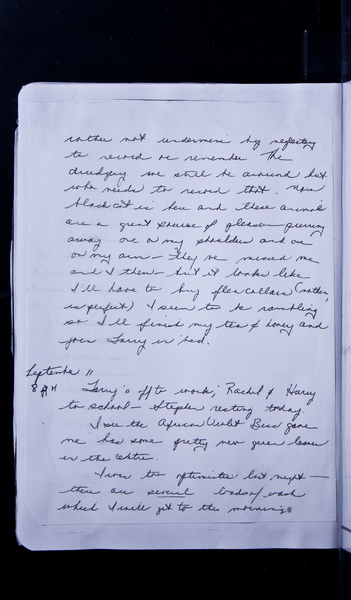 rather not undermine by neglecting
to record or remember. The
drudgery will still be around but
who needs to record that. Now
black cat is here and these animals
are a great source of pleasure – purring
away one on my shoulder and one
on my arm – they've missed me
and I them – but it looks like
I'll have to buy flea collars (nothing
is perfect) I seem to be rambling
so I'll finish my tea & honey and
join Larry in bed.
September 11
8 AM Larry's off to work; Rachel & Harry
to school – Stephen resting today.
I see the African Violet Bess gave
me has some pretty new green leaves
in the center.
I was too optimistic last night –
there are several loads of wash
which I will get to this morning